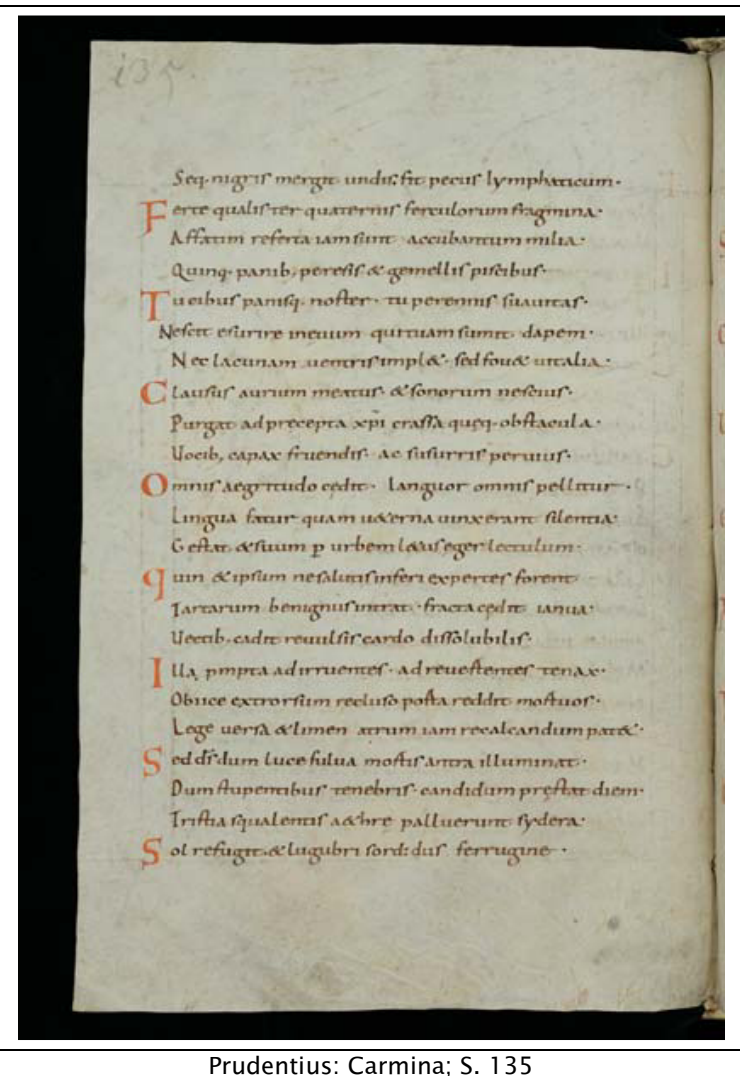 135
Seq· nigris mergit undis: fit pecus lymphaticum·
Ferte qualis ter quaternis ferculorum fragmina·
Affatim referta iam sunt accubantum milia·
Quinq· panib; peresis & gemellis piscibus·
Tu cibus panisq· noster· tu perennis suauitas·
Nescit esurire in euum qui tuam sumit dapem·
Nec lacunam uentris impl&· sed fou& uitalia·
Clausus aurium meatus· & sonorum nescius·
Purgat ad precepta xp̅i crassa queq· obstacula·
Uocib; capax fruendis· ac susurris peruius·
Omnis aegritudo cedit· languor omnis pellitur·
Lingua fatur quam u&erna uinxerant silentia·
Gestat & suum p urbem l&us eger lectulum·
quin & ipsum ne salutis inferi expertes forent
Tartarum benignus intrat· fracta cedit ianua·
Uectib· cadit reuulsis cardo dissolubilis·
Illa pmpta ad irruentes· ad reuertentes tenax·
Obiice extrorsum recluso porta reddit mortuos·
Lege uersa & limen atrum iam recalcandum pat&·
Sed ds̅ dum luce fulua mortis antra illuminat·
Dum stupentibus tenebris· candidum pręstat diem·
Tristia squalentis a&hre palluerunt sydera·
Sol refugit· & lugubri sordidus ferrugine·
Prudentius: Carmina; S. 135